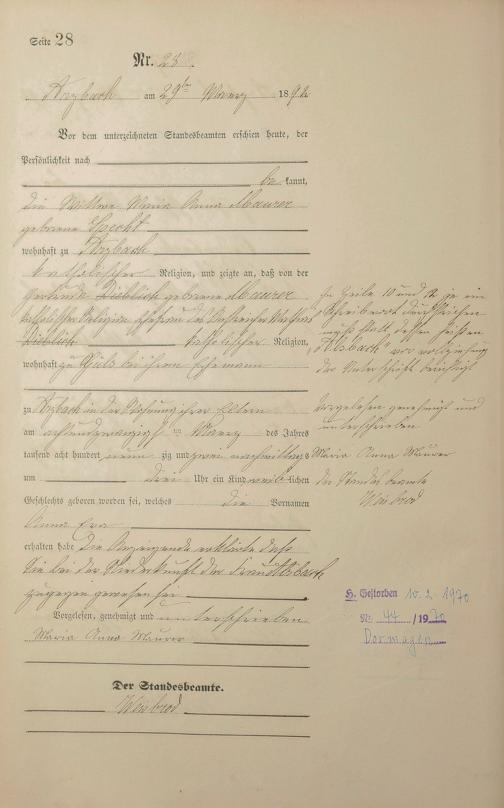 Seite 28
Nr. 28.
Arzbach am 29ten Maerz 1892
Vor dem unterzeichneten Standesbeamten erschien heute, der
Persönlichkeit nach
be kannt,
die Wittwe Maria Anna Maurer
geborene Specht
wohnhaft zu Arzbach
katholischer Religion, und zeigte an, daß von der
Gertrude Dieblich geborene Maurer
katholischer Religion Ehefrau des
Dieblich katholischer Religion,
wohnhaft zu Güls bei ihrem Ehemann
zu Arzbach in der Wohnung ihrer Eltern
am achtundzwanzigsten Maerz des Jahres
tausend acht hundert neun zig und zwei nachmittags
um drei Uhr ein Kind weib lichen
Geschlechts geboren worden sei, welches die Vornamen
Anna Eva
erhalten habe. Die Anzeigende erklärte daß
sie bei der Niederkunft der Frau Alsbach
zugegen gewesen sei
Vorgelesen, genehmigt und unterschrieben
Maria Anna Maurer
Der Standesbeamte.
Weisbrod
In Zeile 10 und 12 je ein
Schreibwort durchstrichen
muß statt dessen heißen
"Alsbach" vor vollziehung
der Unterschrift berichtigt
Vorgelesen genehmigt und
unterschrieben
Maria Anna Maurer
der Standesbeamte
Weisbrod
H. Gestorben 10.2.1970
Nr. 44 / 1970
Dormagen